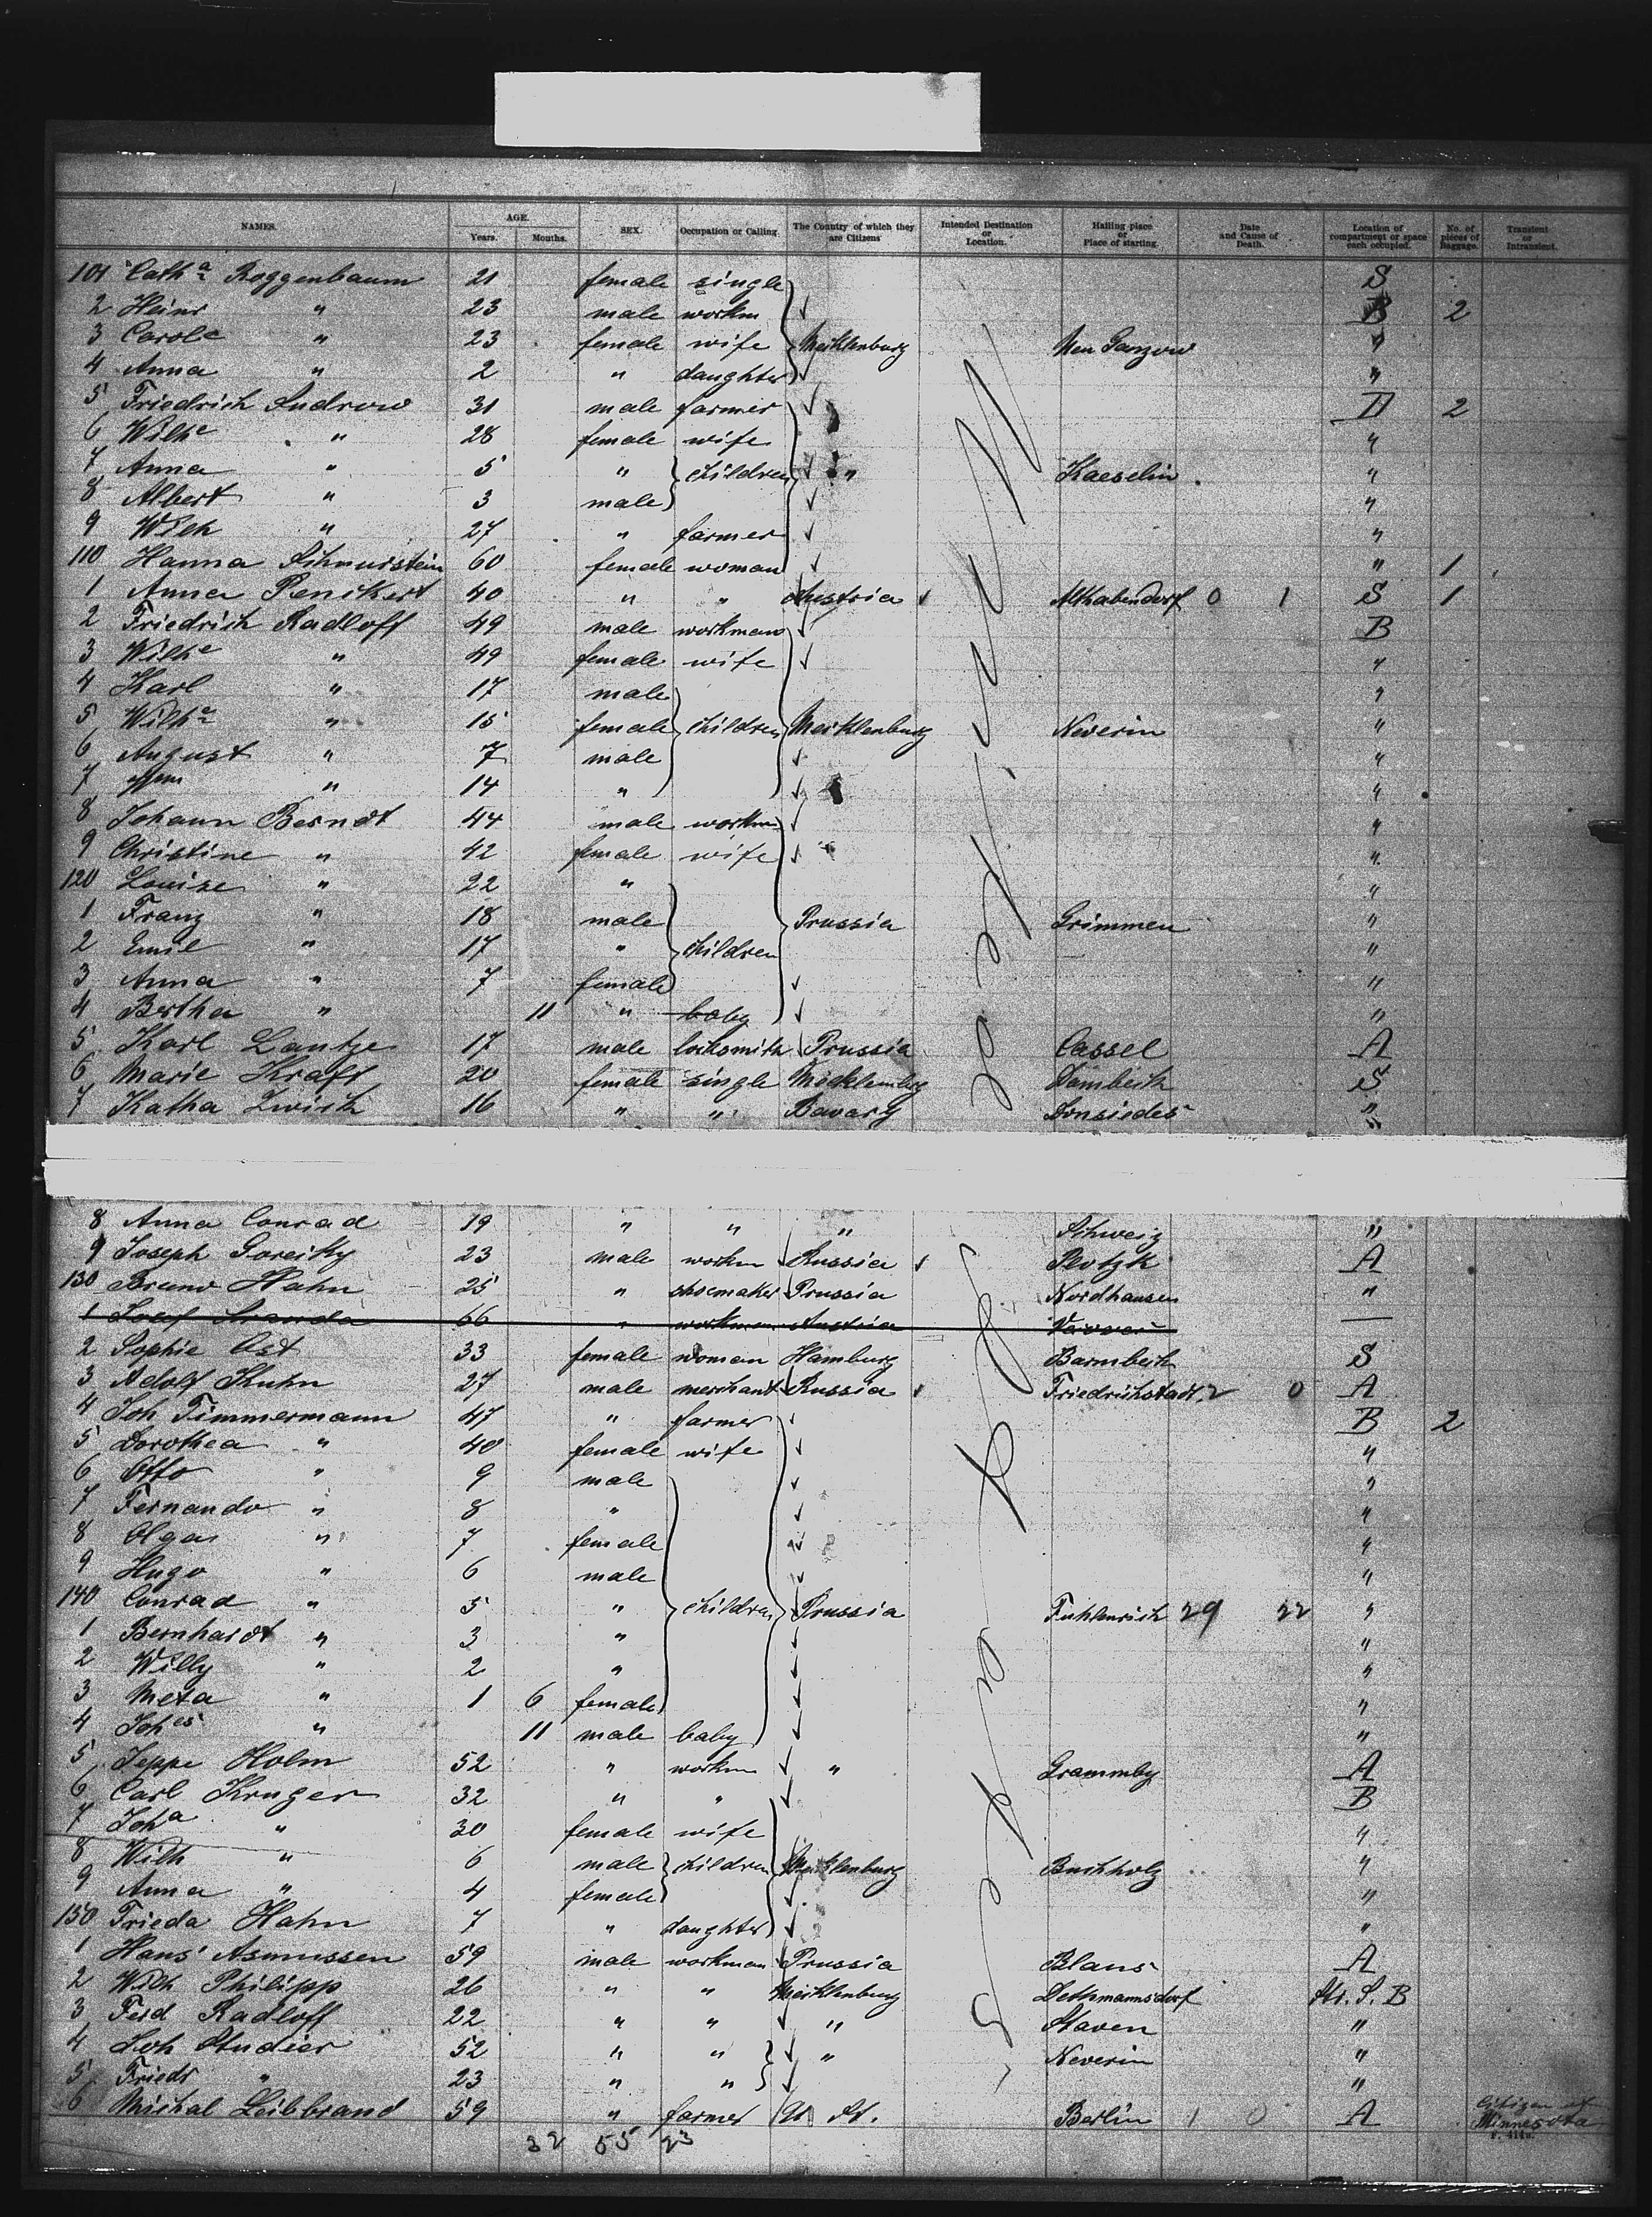 NAMES. AGE. Years. Months. SEX. Occupation or Calling. The Country of which they are Citizens Intended Destination or Location. Hailing place or Place of starting. Date and Cause of Death. Location of compartment or space each occupied. No. of pieces of Baggage. Transient or Intransient.
101 Cath.a Roggenbaum 21 female single S
2 Heinr " 23 male workm B 2
3 Carol.e " 23 female wife Mecklenburg Neu Ganzow "
4 Anna " 2 " daughter "
5 Friedrich Sudrow 31 male farmer B 2
6 Wilh.e " 28 female wife "
7 Anna " 5 " children " Kaeselin "
8 Albert " 3 male "
9 Wilh " 27 " farmer "
110 Hanna 60 female woman " 1
1 Anna Penikert 40 " " Austria Althabendorf 0 1 S 1
2 Friedrich Radloff 49 male workman B
3 Wilh.e " 49 female wife "
4 Karl " 17 male "
5 Wilh.e " 15 female children Mecklenburg Neverin "
6 August " 7 male "
7 " 14 " "
8 Johann Berndt 44 male workm "
9 Christine " 42 female wife "
120 Louise " 22 " "
1 Franz " 18 male Prussia Grimmen "
2 Emil " 17 " children "
3 Anna " 7 female "
4 Bertha " 11 " baby "
5 Karl Lantze 17 male locksmith Prussia Cassel A
6 Marie Kraft 20 female single Mecklenburg Dambeck S
7 Katha Zwick 16 " " Bavary Donsieders "
8 Anna Conrad 19 " " " Schweiz "
9 Joseph Goreitky 23 male workm Russia Plotzk A
130 Bruno Hahn 25 " shoemaker Prussia Nordhausen "
1 Josef 66 " workman Austria
2 Sophie Ast 33 female woman Hamburg Barmbeck S
3 Adolf Kuhn 27 male merchant Russia Friedrichstadt 2 0 A
4 Joh Timmermann 47 " farmer B 2
5 Dorothea " 40 female wife "
6 Otto " 9 male "
7 Fernando " 8 " "
8 Olga " 7 female "
9 Hugo " 6 male "
140 Conrad " 5 " children Prussia 29 22 "
1 Bernhardt " 3 " "
2 Willy " 2 " "
3 Meta " 1 6 female "
4 Joh.es " 11 male baby "
5 Jeppe Holm 52 " workm " Grammby A
6 Carl Kruger 32 " " B
7 Joh.a " 30 female wife "
8 Wilh " 6 male children Mecklenburg Buchholz "
9 Anna " 4 female "
150 Frieda Hahn 7 " daughter "
1 Hans Asmussen 59 male workman Prussia Blans A
2 Wilh Philipp 26 " " Mecklenburg Dethmannsdorf Str. S. B
3 Ferd Radloff 22 " " " Staven "
4 Joh Studier 52 " " " Neverin "
5 Friedr " 23 " " "
6 Michal Leibbrand 59 " farmer U. St. Berlin 1 0 A Citizen of Minnesota
32 55 23